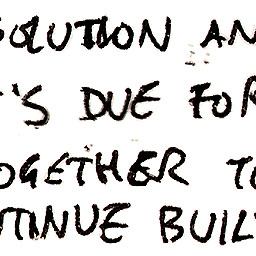 SOLUTION AN
'S DUE FOR
OGETHER TO
NTINUE BUIL